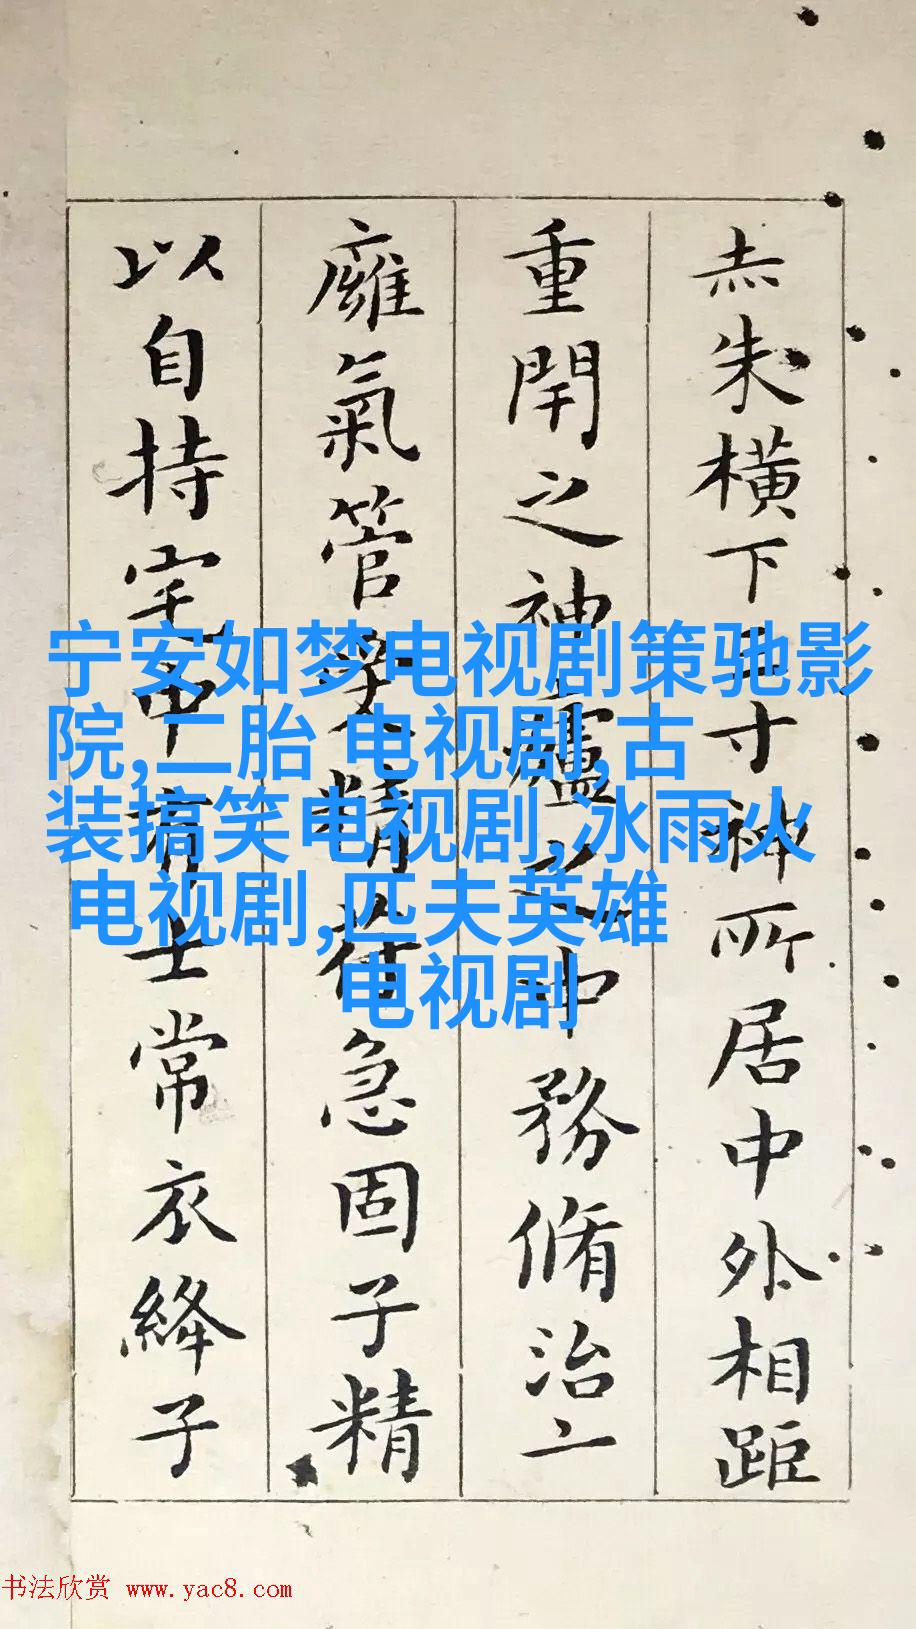 𡗗朱橫下三寸神所居中外相距
重閇之神廬之中務脩治𠄞
廱氣管受精苻急固子精
以自持宅中有士常衣絳子
宁安如梦电视剧策驰影
院,二胎 电视剧,古
装搞笑电视剧, 冰雨火
电视剧,匹夫英雄
电视剧
书法欣赏 www.yac8.com